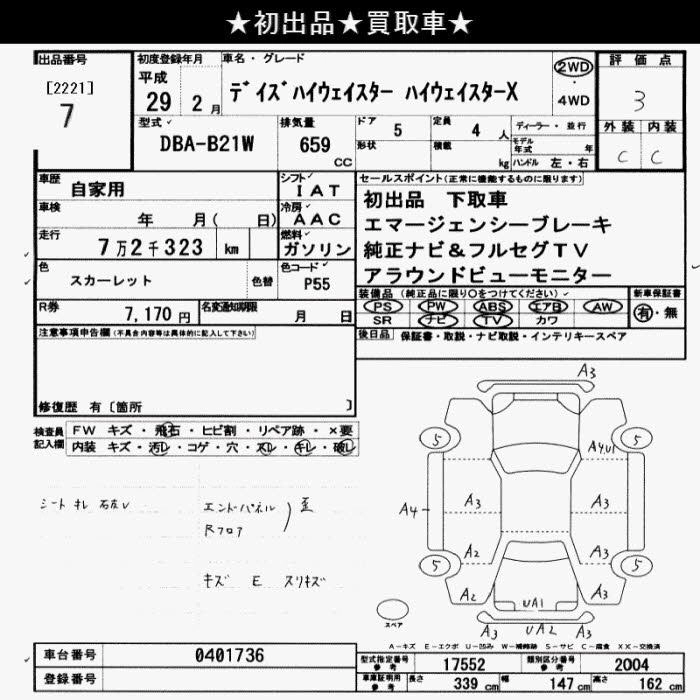 ★初出品★買取車★
出品番号
[2221]
7
初度登録年月
平成
29 2 月
車名・グレード
デイズハイウェイスター ハイウェイスターX
2WD
・
4WD
評価点
3
外装 内装
C C
型式
DBA-B21W
排気量
659
CC
ドア 5
形状
定員 4 人
積載 kg
ディーラー・並行
モデル年式 年
ハンドル 左・右
車歴 自家用
シフト IAT
車検 年 月( 日)
冷房 AAC
走行 7万2千323 km
燃料 ガソリン
色 スカーレット 色替
色コード P55
R券 7,170 円
名変通知期限 月 日
セールスポイント(正常に機能するものに限ります)
初出品 下取車
エマージェンシーブレーキ
純正ナビ&フルセグTV
アラウンドビューモニター
装備品(純正品に限り○をつけてください)
PS PW ABS エアB AW
SR ナビ TV カワ
新車保証書
有・無
後日品 保証書・取説・ナビ取説・インテリキースペア
注意事項申告欄(不具合内容等は具体的に記入して下さい)
修復歴 有 [箇所 ]
検査員記入欄
FW キズ・飛石・ヒビ割・リペア跡・×要
内装 キズ・汚レ・コゲ・穴・スレ・キレ・破レ
シート キレ 右左レ
エンドパネル
Rフロア
歪
キズ E スリキズ
A3
5 5
A4,U1
A4 A3 A3
A2 A3
5 5
A2 A3
UA1
A3 UA2 A3
スペア
A-キズ E-エクボ U-凹み W-補修跡 S-サビ C-腐食 XX-交換済
車台番号 0401736
登録番号
型式指定番号 参考 17552
類別区分番号 参考 2004
車庫証明用 参考 長さ 339 cm 幅 147 cm 高さ 162 cm